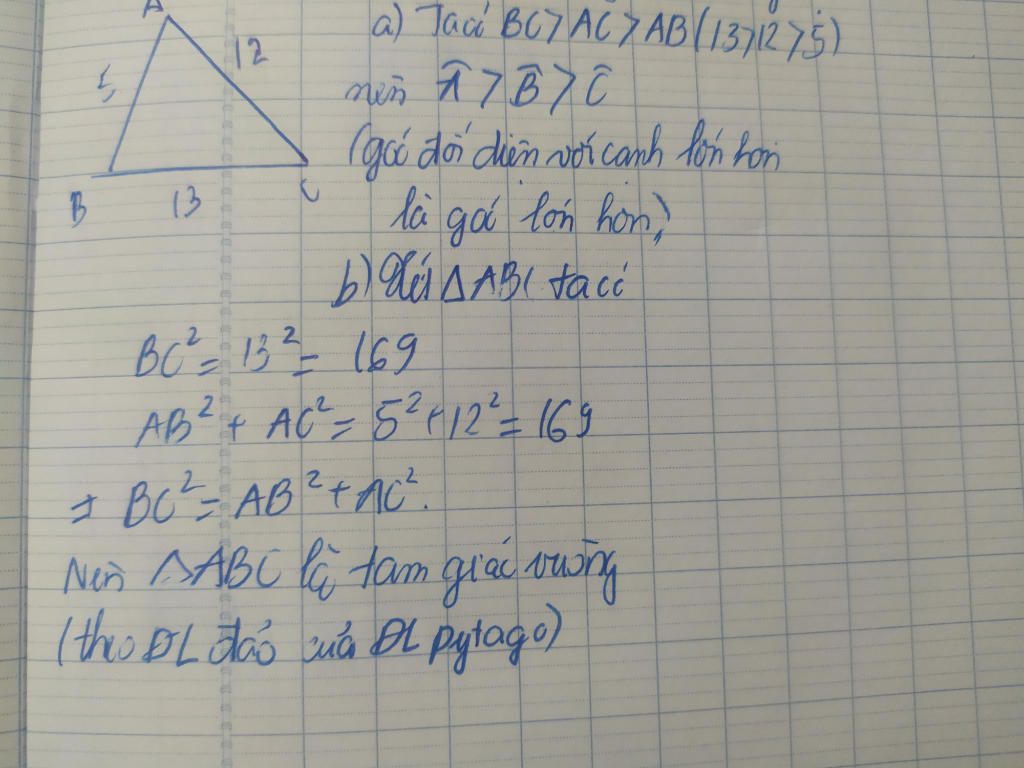 A
12
5
B
13
C
a) Ta có BC > AC > AB (13 > 12 > 5)
nên Â > B̂ > Ĉ
(góc đối diện với cạnh lớn hơn
là góc lớn hơn)
b) Xét ΔABC ta có
BC² = 13² = 169
AB² + AC² = 5² + 12² = 169
⇒ BC² = AB² + AC².
Nên ΔABC là tam giác vuông
(theo ĐL đảo của ĐL pytago)